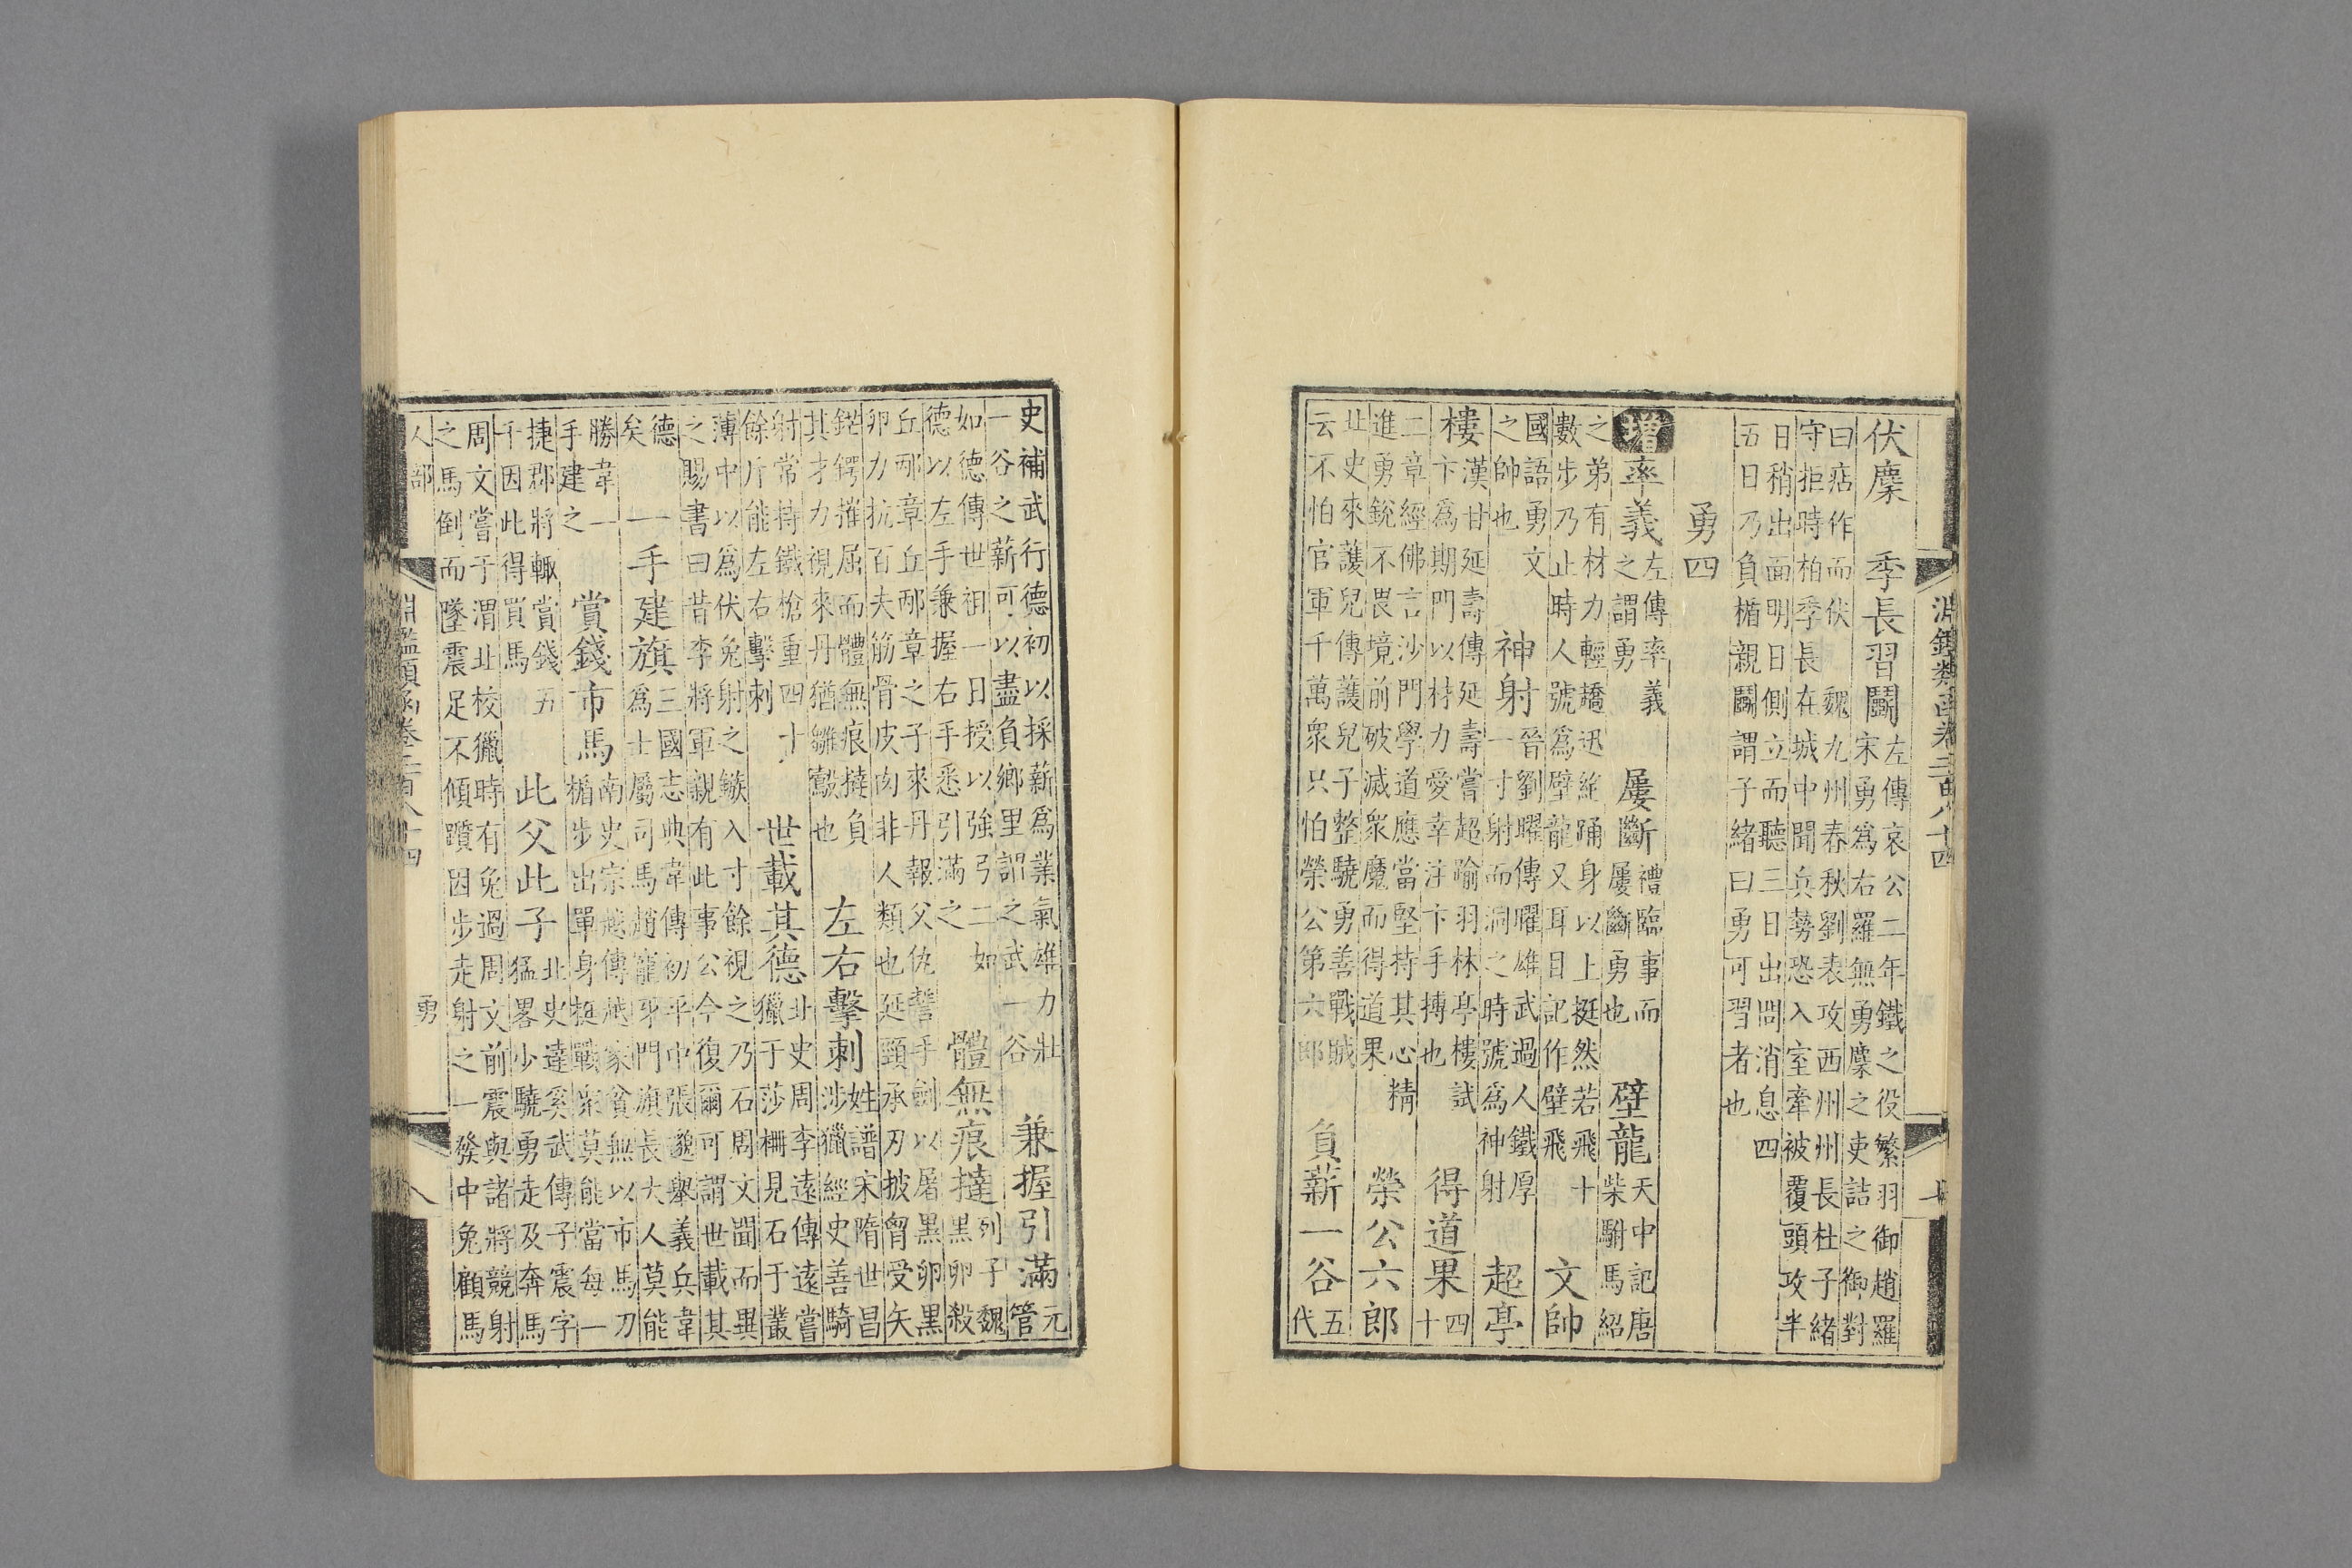 淵鑑類函卷二百八十四
伏麇　季長習鬬
左傳哀公二年鐵之役繁羽御趙羅
宋勇為右羅無勇麇之吏詰之御對
曰痁作而伏
守拒時柏季長在城中聞兵勢恐入室牽被覆頭攻半
魏九州春秋劉表攻西州州長杜子緒
日稍出面明日側立而聽三日出問消息四
五日乃負楯親鬬謂子緒曰勇可習者也
勇四
增率義
左傳率義
之謂勇
屢斷
禮臨事而
屢斷勇也
壁龍
天中記唐
柴駙馬紹
之弟有材力輕趫迅疾踊身以上挺然若飛十
數步乃止時人號為壁龍又耳目記作壁飛
文帥
國語勇文
之帥也
神射
晉劉曜傳曜雄武過人鐵厚
一寸射而洞之時號為神射
超亭
樓
漢甘延壽傳延壽嘗超踰羽林亭樓試
卞為期門以材力愛幸注卞手搏也
得道果
四
十
二章經佛言沙門學道應當堅持其心精
進勇銳不畏境前破滅眾魔而得道果
榮公六郎
北史來護兒傳護兒子整驍勇善戰賊
云不怕官軍千萬眾只怕榮公第六郎
負薪一谷
五
代
史補武行德初以採薪為業氣雄力壯
一谷之薪可以盡負鄉里謂之武一谷
兼握引滿
元
管
如德傳世祖一日授以強弓二如
德以左手兼握右手悉引滿之
體無痕撻
列子魏
黑卵殺
丘邴章丘邴章之子來丹報父仇誓手劍以屠黑卵黑
卵力抗百夫筋骨皮肉非人類也延頸承刃披胷受矢
鋩鍔摧屈而體無痕撻負
其才力視來丹猶雛鷇也
左右擊刺
姓譜宋隋世昌
涉獵經史善騎
射常持鐵槍重四十
餘斤能左右擊刺
世載其德
北史周李遠傳遠嘗
獵于莎柵見石于叢
薄中以為伏兔射之鏃入寸餘視之乃石周文聞而異
之賜書曰昔李將軍親有此事公今復爾可謂世載其
德
矣
一手建旗
三國志典韋傳初平中張邈舉義兵韋
為士屬司馬趙寵牙門旗長大人莫能
勝韋一
手建之
賞錢市馬
南史宗越傳越家貧無以市馬刀
楯步出單身挺戰眾莫能當每一
捷郡將輒賞錢五
千因此得買馬
此父此子
北史達奚武傳子震字
猛畧少驍勇走及奔馬
周文嘗于渭北校獵時有兔過周文前震與諸將競射
之馬倒而墜震足不傾躓因步走射之一發中兔顧馬
人部
淵鑑類函卷二百八十四
勇
八